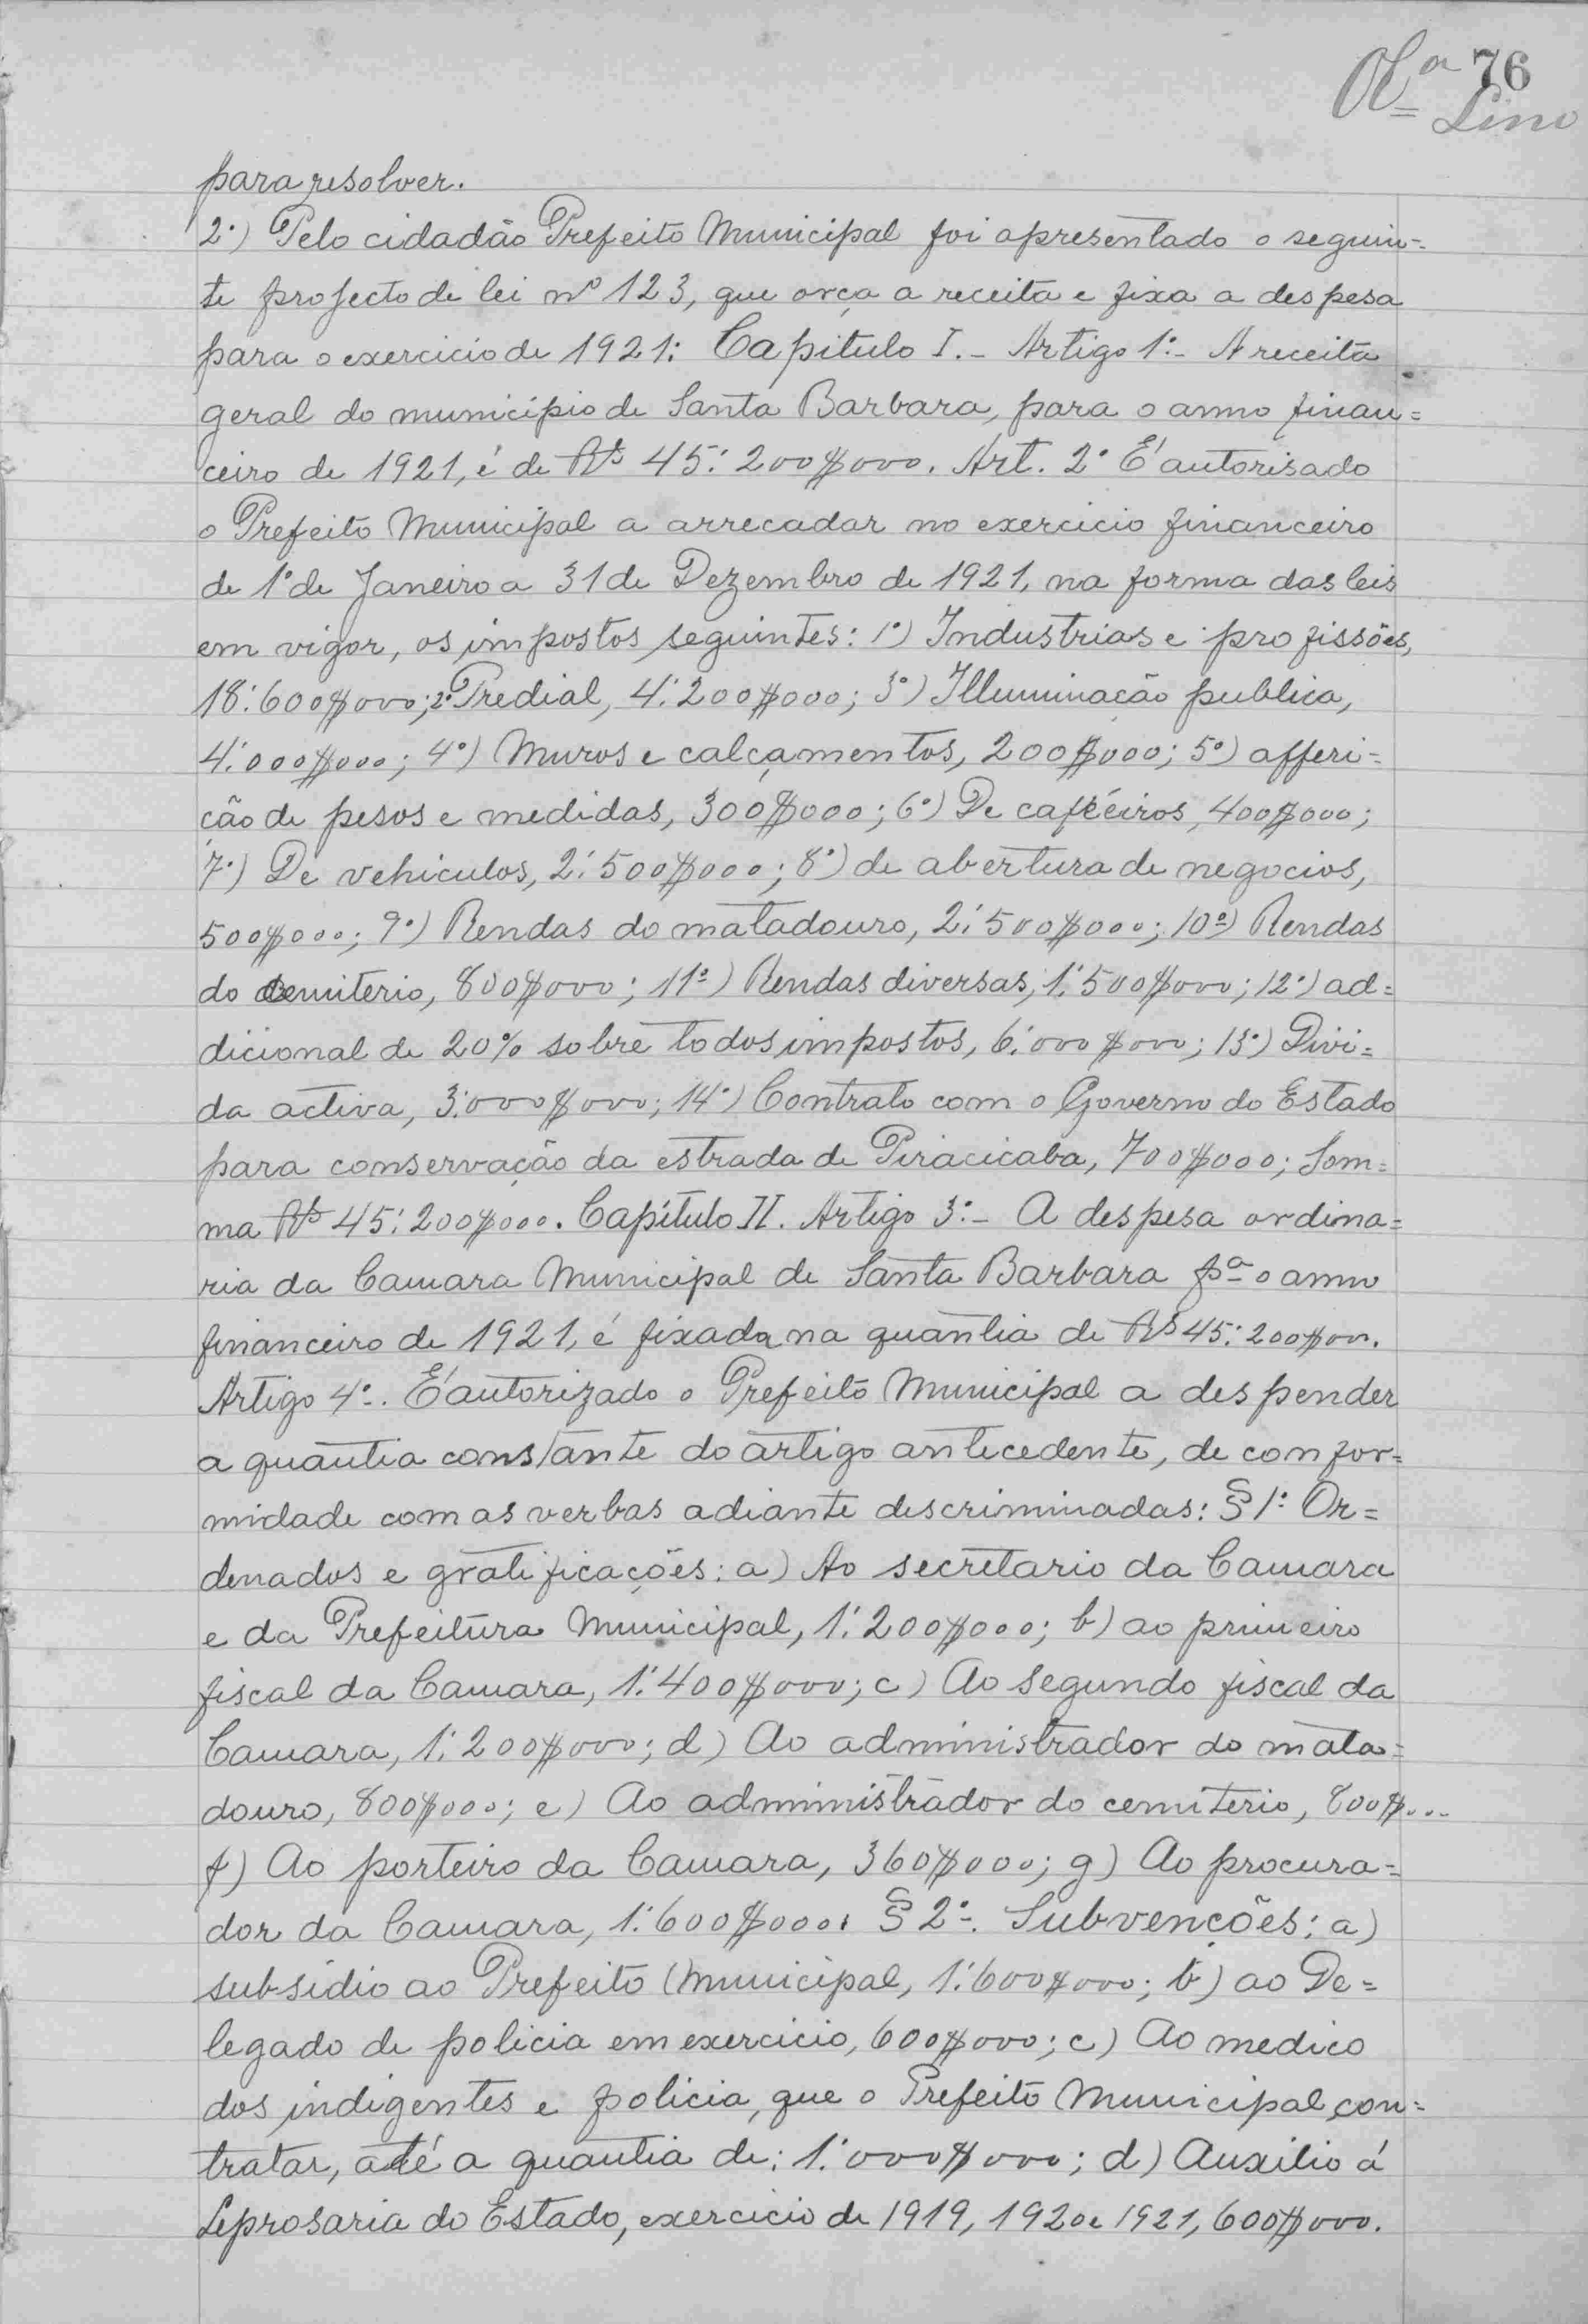 76
Lino
para resolver.
2º) Pelo cidadão Prefeito Municipal foi apresentado o seguin=
te projecto de lei nº 123, que orça a receita e fixa a despesa
para o exercicio de 1921: Capitulo I.- Artigo 1º- A receita
geral do municipio de Santa Barbara, para o anno finan=
ceiro de 1921, é de Rs 45:200$000. Art. 2º É autorisado
o Prefeito Municipal a arrecadar no exercicio financeiro
de 1º de Janeiro a 31 de Dezembro de 1921, na forma das leis
em vigor, os impostos seguintes: 1º) Industrias e profissões,
18:600$000; 2º Predial, 4:200$000; 3º) Illuminação publica,
4:000$000; 4º) Muros e calçamentos, 200$000; 5º) afferi=
ção de pesos e medidas, 300$000; 6º) De caféeiros, 400$000;
7º) De vehiculos, 2:500$000; 8º) de abertura de negocios,
500$000; 9º) Rendas do matadouro, 2:500$000; 10º) Rendas
do cemiterio, 800$000; 11º) Rendas diversas, 1:500$000; 12º) ad=
dicional de 20% sobre todos impostos, 6:000$000; 13º) Divi=
da activa, 3:000$000; 14º) Contrato com o Governo do Estado
para conservação da estrada de Piracicaba, 700$000; Som=
ma Rs 45:200$000. Capitulo II. Artigo 3º- A despesa ordina=
ria da Camara Municipal de Santa Barbara pª o anno
financeiro de 1921, é fixada na quantia de Rs 45:200$000.
Artigo 4º. É autorizado o Prefeito Municipal a despender
a quantia constante do artigo antecedente, de confor=
midade com as verbas adiante descriminadas: § 1º Or=
denados e gratificações: a) Ao secretario da Camara
e da Prefeitura Municipal, 1:200$000; b) ao primeiro
fiscal da Camara, 1:400$000; c) Ao segundo fiscal da
Camara, 1:200$000; d) Ao administrador do mata=
douro, 800$000; e) Ao administrador do cemiterio, 800$...
f) Ao porteiro da Camara, 360$000; g) Ao procura=
dor da Camara, 1:600$000. § 2º. Subvenções: a)
subsidio ao Prefeito Municipal, 1:600$000; b) ao De=
legado de policia em exercicio, 600$000; c) Ao medico
dos indigentes e policia, que o Prefeito Municipal con=
tratar, até a quantia de: 1:000$000; d) Auxilio á
Leprosaria do Estado, exercicio de 1919, 1920 e 1921, 600$000.